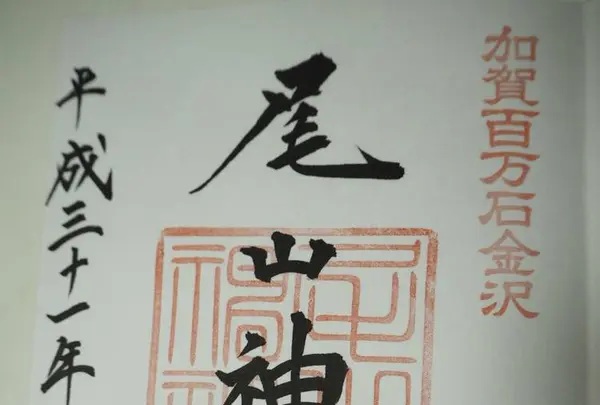 加賀百万石金沢
尾山神
平成三十一年